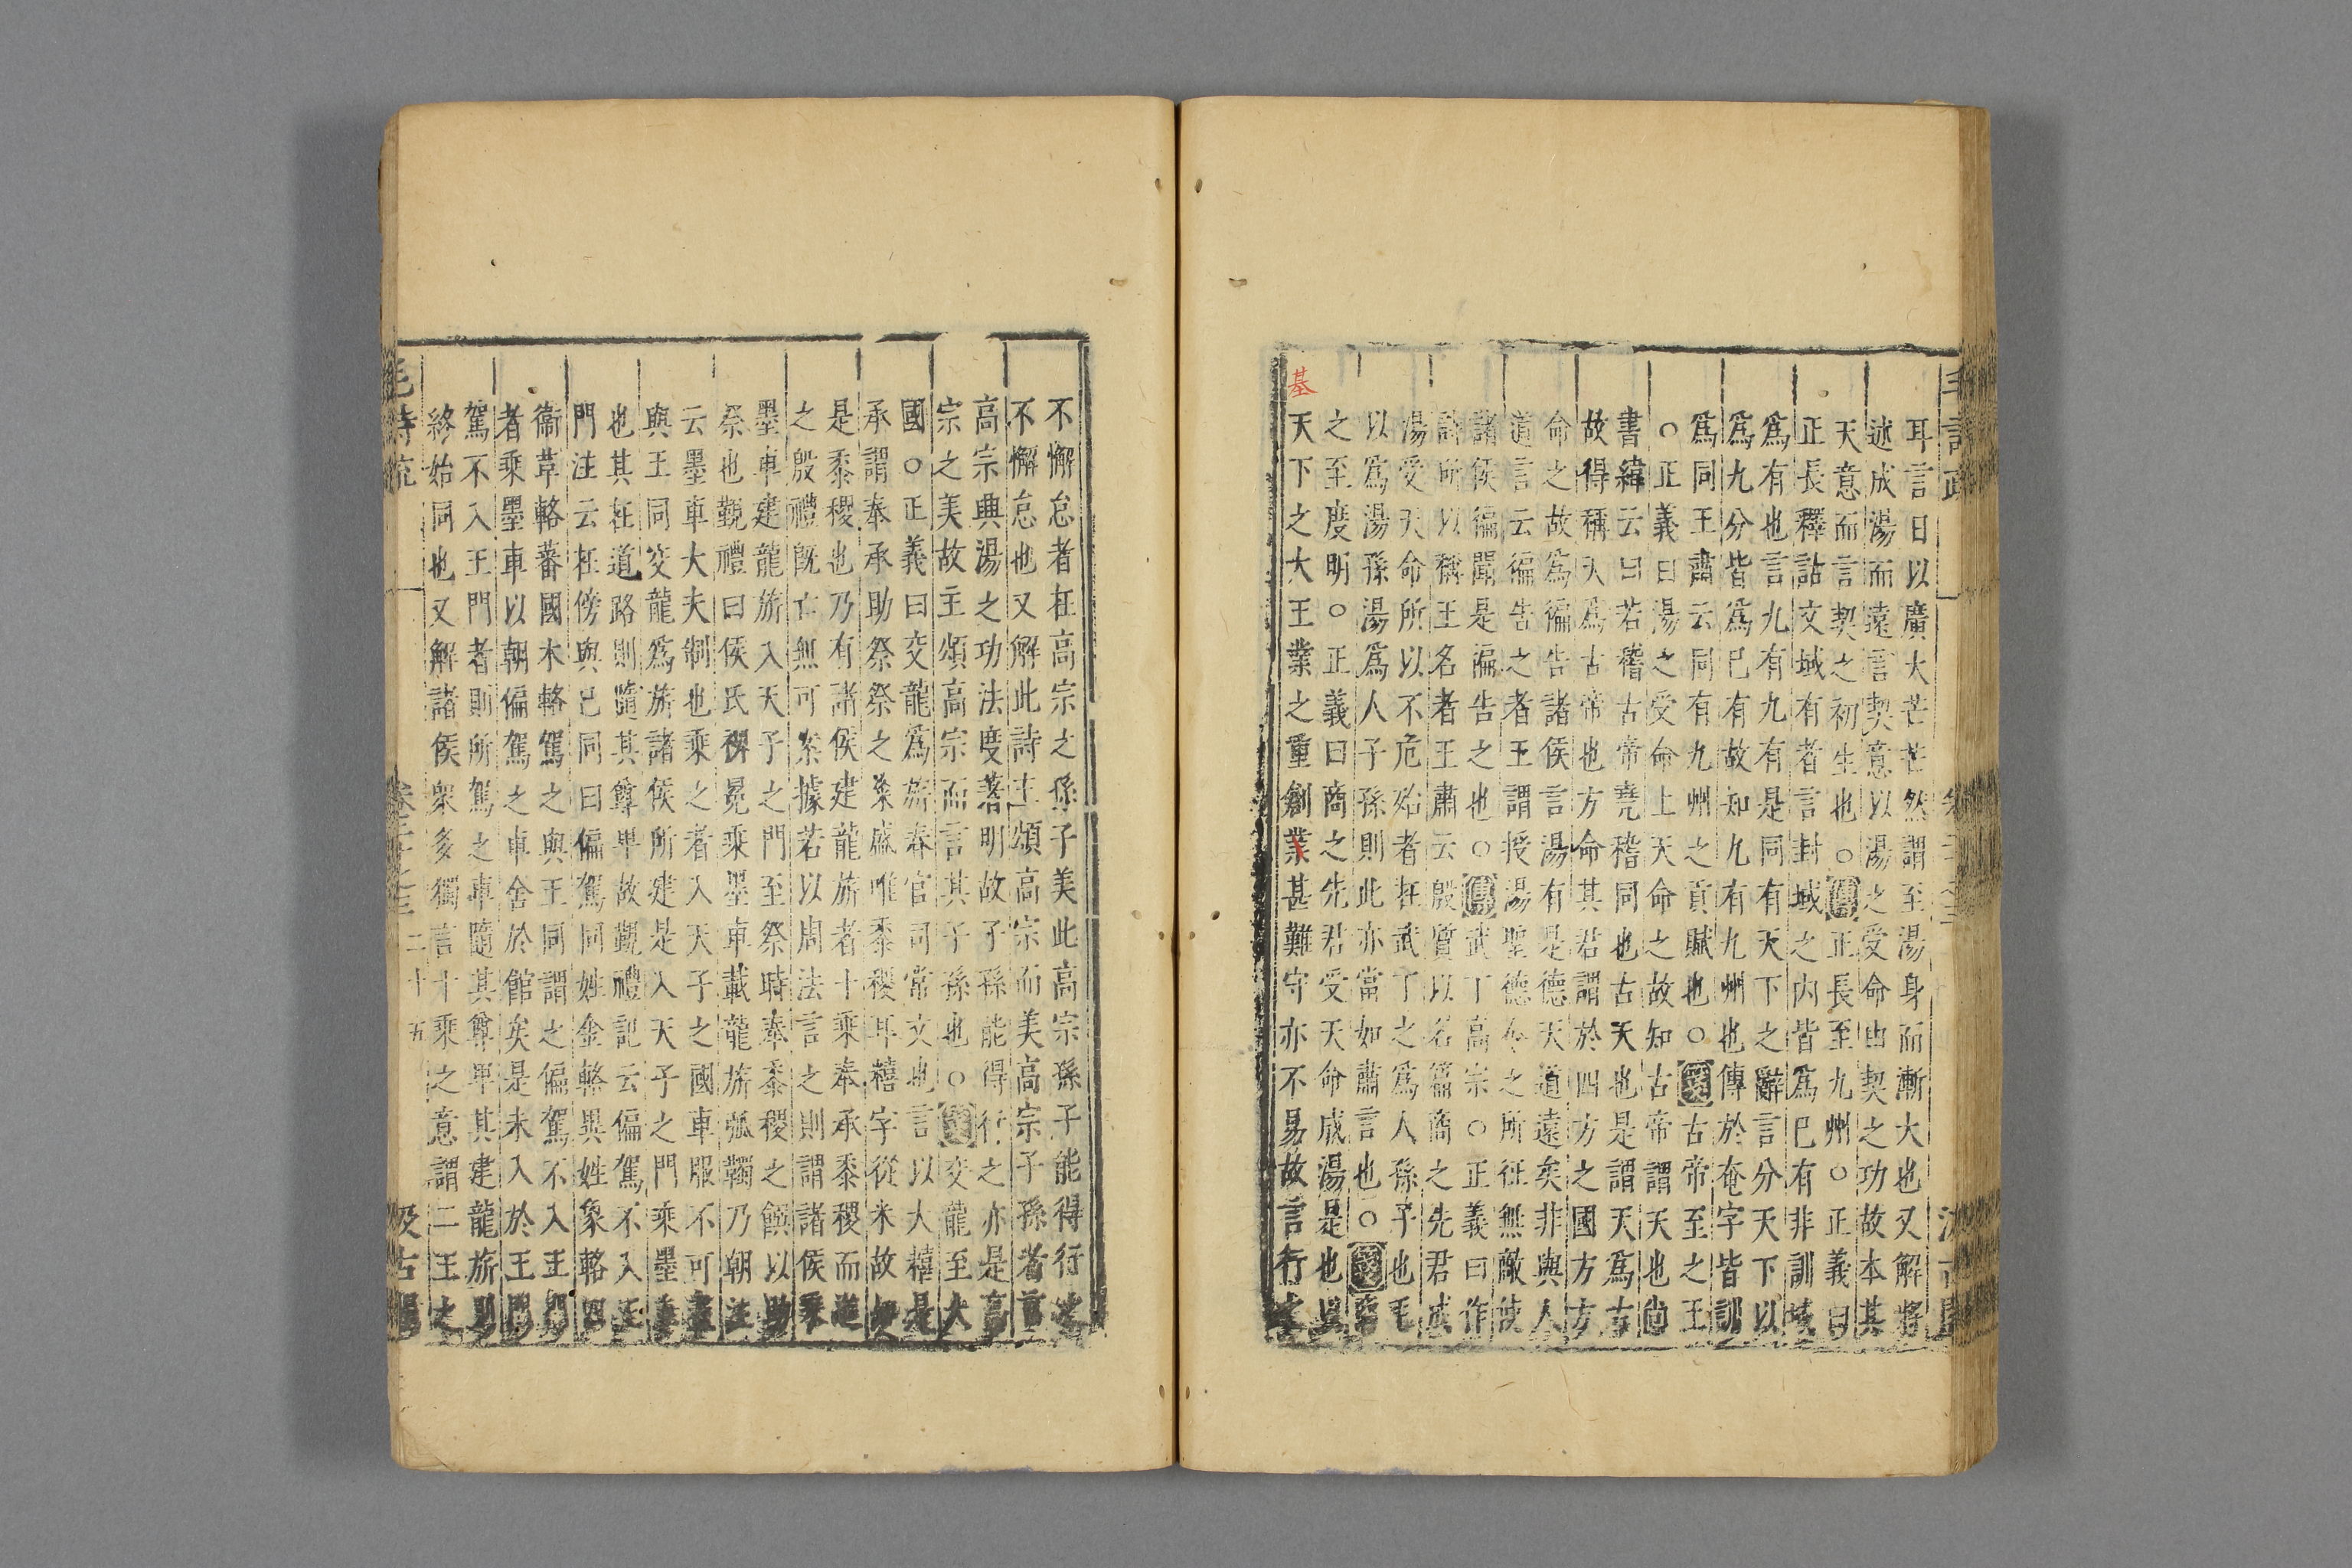 耳言日以廣大芒芒然謂至湯身而漸大也又解將
述成湯而遠言契意以湯之受命由契之功故本其
天意而言契之初生也○傳正長至九州○正義曰
正長釋詁文域有者言封域之內皆爲巳有非訓域
爲有也言九有九有是同有天下之辭言分天下以
爲九分皆爲巳有故知九有九州也傳於奄字皆訓
爲同王肅云同有九州之貢賦也○箋古帝至之王
○正義曰湯之受命上天命之故知古帝謂天也尚
書緯云曰若稽古帝堯稽同也古天也是謂天爲古
故得稱天爲古帝也方命其君謂於四方之國方方
命之故爲徧告諸侯言湯有是德天道遠矣非與人
道言云徧告之者王謂授湯聖德令之所征無敵使
諸侯徧聞是徧告之也○傳武丁高宗○正義曰作
詩所以稱王名者王肅云殷質以名篇商之先君成
湯受天命所以不危殆者在武丁之爲人孫子也毛
以爲湯孫湯爲人子孫則此亦當如肅言也○箋商
之至度明○正義曰商之先君受天命成湯是也以
天下之大王業之重創業甚難守亦不易故言行之
基
毛詩疏
不懈怠者在高宗之孫子美此高宗孫子能得行之
不懈怠也又解此詩主頌高宗而美高宗子孫者言
高宗典湯之功法度著明故子孫能得行之亦是高
宗之美故主頌高宗而言其子孫也○箋交龍至大
國○正義曰交龍爲旂春官司常文也言以大糦是
承謂奉承助祭祭之粢盛唯黍稷耳糦字從米故知
是黍稷也乃有諸侯建龍旂者十乘奉承黍稷而進
之殷禮旣亡無可案據若以周法言之則謂諸侯乘
墨車建龍旂入天子之門至祭時奉黍稷之饌以助
祭也覲禮曰侯氏裨冕乘墨車載龍旂弧韣乃朝注
云墨車大夫制也乘之者入天子之國車服不可盡
與王同交龍爲旂諸侯所建是入天子之門乘墨車
也其在道路則隨其尊卑故覲禮記云偏駕不入王
門注云在傍與已同曰偏駕同姓金輅異姓象輅四
衞革輅蕃國木輅駕之與王同謂之偏駕不入王門
者乘墨車以朝偏駕之車舍於館矣是未入於王門
駕不入王門者則所駕之車隨其尊卑其建龍旂則
終始同也又解諸侯衆多獨言十乘之意謂二王之
毛詩疏 卷二十之三 二十五 汲古閣